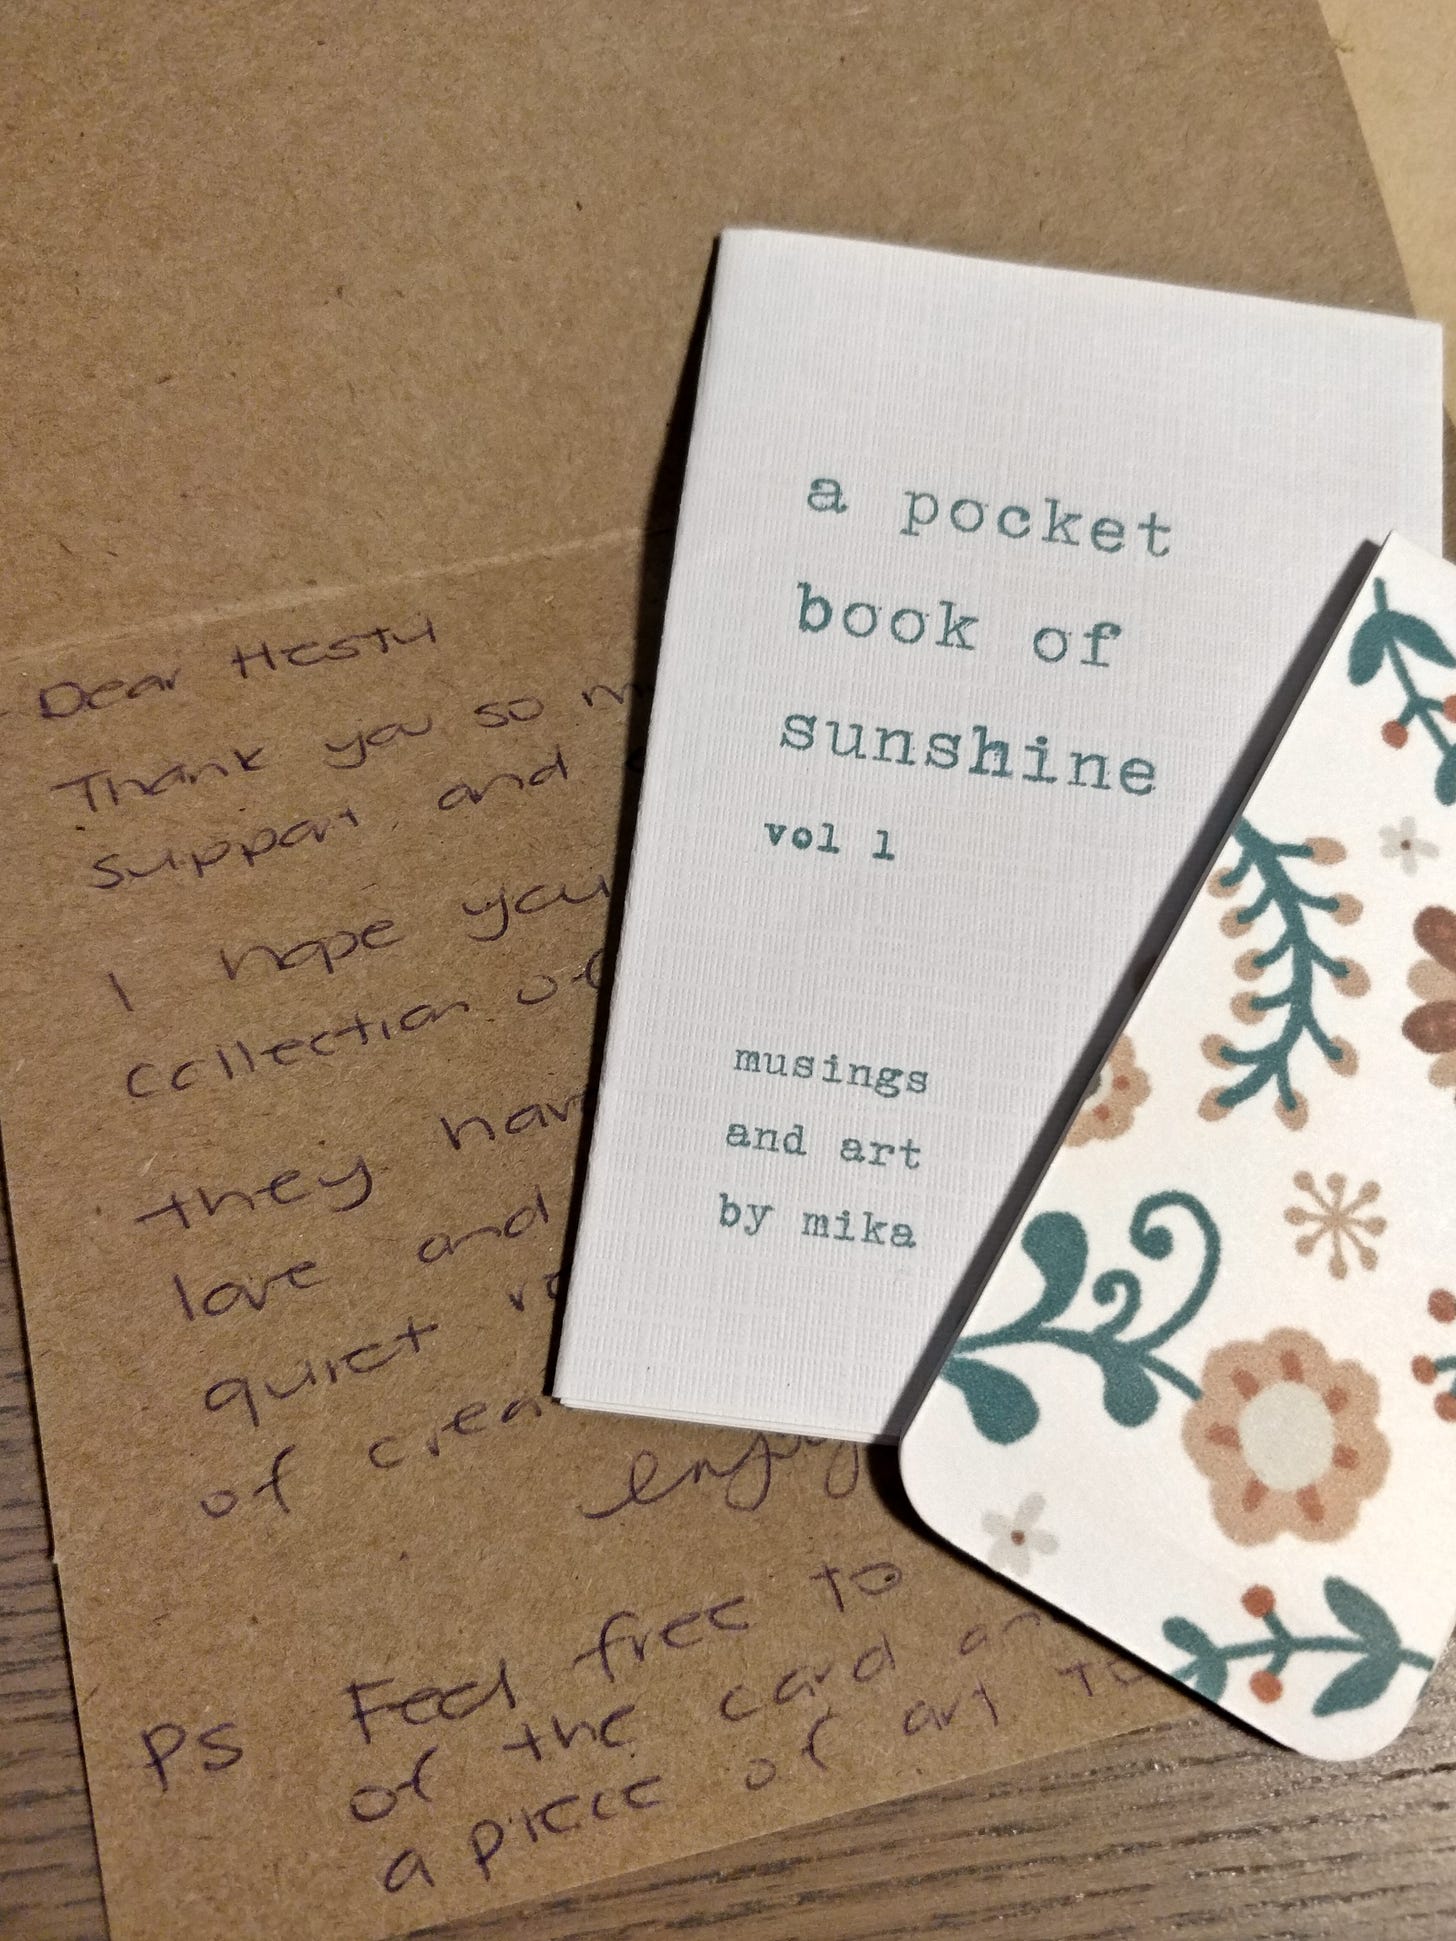 Dear Hesty
Thank you so
support and
I hope you
collection of
they
love and
quiet
of
enjoy
PS Feel free to
of the card
a piece of art
a pocket
book of
sunshine
vol 1
musings
and art
by mika